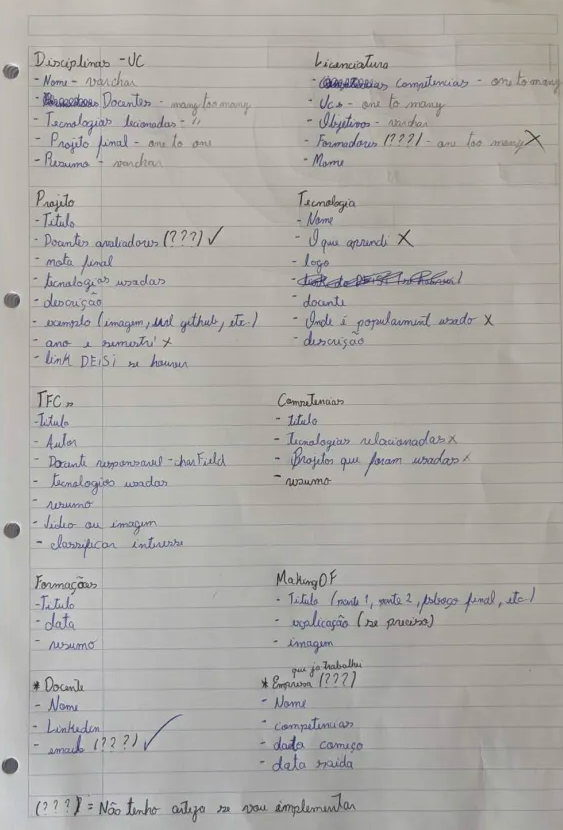 Disciplinas - UC
- Nome - varchar
- Docentes - many too many
- Tecnologias lecionadas - "
- Projeto final - one to one
- Resumo - varchar
Licenciatura
- Competencias - one to many
- Ucs - one to many
- Objetivos - varchar
- Formadores (???) - one too many X
- Nome
Projeto
- Titulo
- Docentes avaliadores (???) ✓
- nota final
- tecnologias usadas
- descrição
- exemplo (imagem, url github, etc.)
- ano e semestre X
- link DEISI se houver
Tecnologia
- Nome
- O que aprendi X
- logo
- docente
- Onde é popularment usado X
- descrição
TFCs
- Titulo
- Autor
- Docente responsavel - charField
- tecnologias usadas
- resumo
- video ou imagem
- classificar interesse
Competencias
- titulo
- Tecnologias relacionadas X
- Projetos que foram usadas X
- resumo
Formações
- Titulo
- data
- resumo
MakingOF
- Titulo (parte 1, parte 2, esboço final, etc.)
- explicação (se preciso)
- imagem
* Docente
- Nome
- Linkedin
- email (???) ✓
que já trabalhei
* Empresa (???)
- Nome
- competencias
- data começo
- data saida
(???) = Não tenho certeza se vou implementar